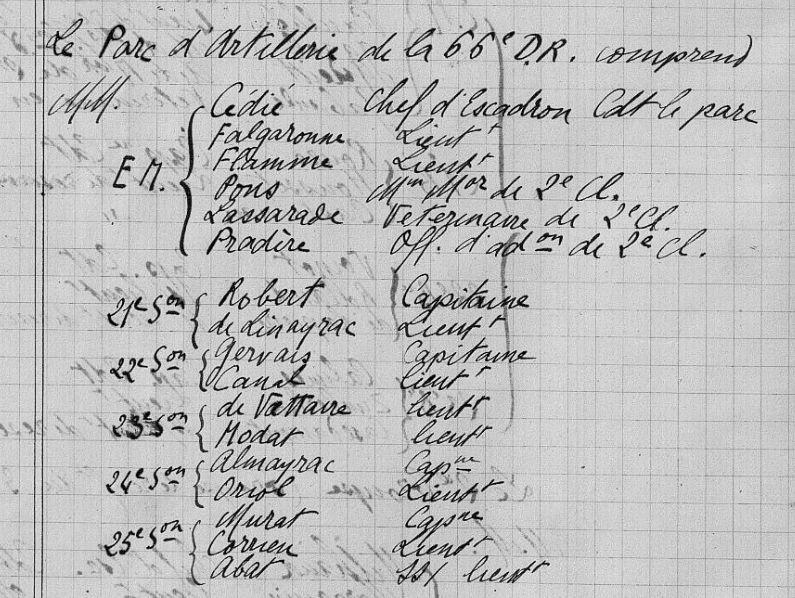 Le Parc d'Artillerie de la 66e D.R. comprend
MM. Cédié Chef d'Escadron Cdt le parc
Falgaronne Lieutt
Flamme Lieutt
E.M. Pons Mm Mor de 2e Cl.
Lassarade Vétérinaire de 2e Cl.
Pradère Off. d'adon de 2e Cl.
21e Son Robert Capitaine
de Linayrac Lieutt
22e Son Gervais Capitaine
Canal Lieutt
23e Son de Vattaire Lieutt
Modat Lieutt
24e Son Almayrac Capne
Oriol Lieutt
Murat Capne
25e Son Corrieu Lieutt
Abat Lieutt